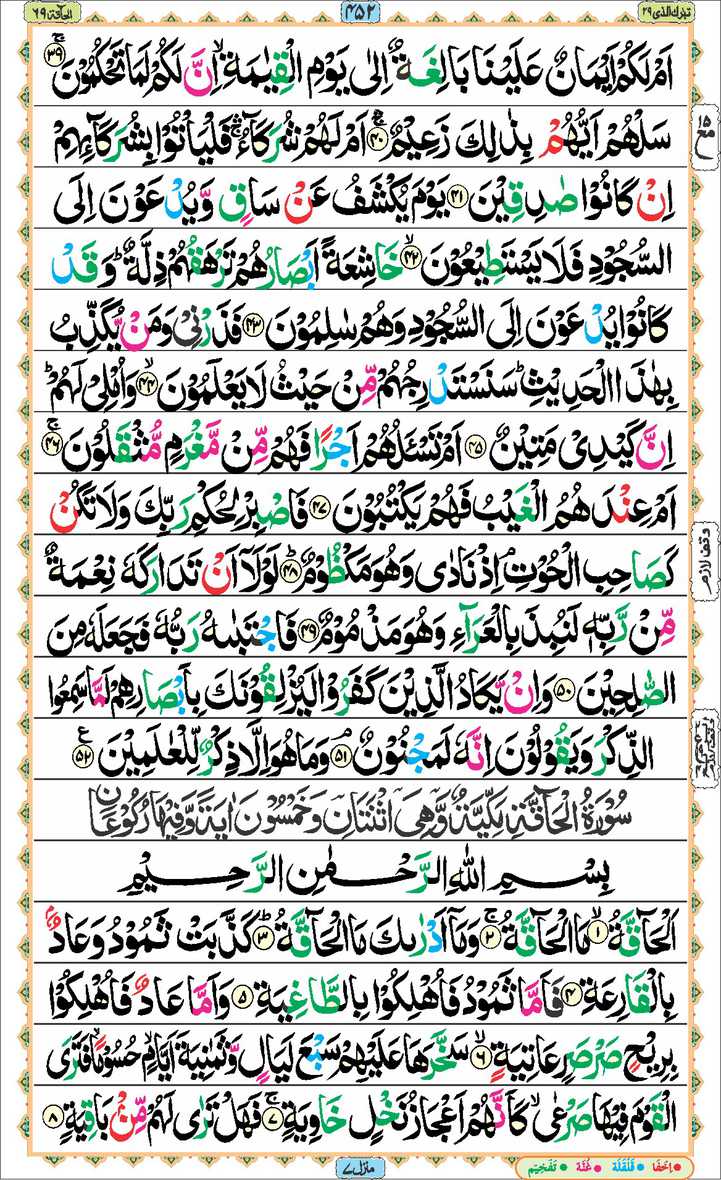 تبٰرك الذی ۲۹
۴۵۲
الحآقة ۶۹
اَمْ لَكُمْ اَيْمَانٌ عَلَيْنَا بَالِغَةٌ اِلٰى يَوْمِ الْقِيٰمَةِ ۙ اِنَّ لَكُمْ لَمَا تَحْكُمُوْنَ ۚ‏﴿۳۹﴾
سَلْهُمْ اَيُّهُمْ بِذٰلِكَ زَعِيْمٌ ۚۛ‏﴿۴۰﴾ اَمْ لَهُمْ شُرَكَآءُ ۚۛ فَلْيَاْتُوْا بِشُرَكَآئِهِمْ
اِنْ كَانُوْا صٰدِقِيْنَ ﴿۴۱﴾ يَوْمَ يُكْشَفُ عَنْ سَاقٍ وَّيُدْعَوْنَ اِلَى
السُّجُوْدِ فَلَا يَسْتَطِيْعُوْنَ ۙ‏﴿۴۲﴾ خَاشِعَةً اَبْصَارُهُمْ تَرْهَقُهُمْ ذِلَّةٌ ؕ وَقَدْ
كَانُوْا يُدْعَوْنَ اِلَى السُّجُوْدِ وَهُمْ سٰلِمُوْنَ ﴿۴۳﴾ فَذَرْنِيْ وَمَنْ يُّكَذِّبُ
بِهٰذَا الْحَدِيْثِ ؕ سَنَسْتَدْرِجُهُمْ مِّنْ حَيْثُ لَا يَعْلَمُوْنَ ۙ‏﴿۴۴﴾ وَاُمْلِيْ لَهُمْ ؕ
اِنَّ كَيْدِيْ مَتِيْنٌ ﴿۴۵﴾ اَمْ تَسْـَٔلُهُمْ اَجْرًا فَهُمْ مِّنْ مَّغْرَمٍ مُّثْقَلُوْنَ ۚ‏﴿۴۶﴾
اَمْ عِنْدَهُمُ الْغَيْبُ فَهُمْ يَكْتُبُوْنَ ﴿۴۷﴾ فَاصْبِرْ لِحُكْمِ رَبِّكَ وَلَا تَكُنْ
كَصَاحِبِ الْحُوْتِ ۘ اِذْ نَادٰى وَهُوَ مَكْظُوْمٌ ؕ‏﴿۴۸﴾ لَوْلَاۤ اَنْ تَدٰرَكَهٗ نِعْمَةٌ
مِّنْ رَّبِّهٖ لَنُبِذَ بِالْعَرَآءِ وَهُوَ مَذْمُوْمٌ ﴿۴۹﴾ فَاجْتَبٰىهُ رَبُّهٗ فَجَعَلَهٗ مِنَ
الصّٰلِحِيْنَ ﴿۵۰﴾ وَاِنْ يَّكَادُ الَّذِيْنَ كَفَرُوْا لَيُزْلِقُوْنَكَ بِاَبْصَارِهِمْ لَمَّا سَمِعُوا
الذِّكْرَ وَيَقُوْلُوْنَ اِنَّهٗ لَمَجْنُوْنٌ ۘ‏﴿۵۱﴾ وَمَا هُوَ اِلَّا ذِكْرٌ لِّلْعٰلَمِيْنَ ﴿۵۲﴾ ع
سُوْرَةُ الْحَآقَّةِ مَكِّيَّةٌ وَّهِيَ اثْنَتَانِ وَخَمْسُوْنَ اٰيَةً وَّفِيْهَا رُكُوْعَانِ
بِسْمِ اللّٰهِ الرَّحْمٰنِ الرَّحِيْمِ
اَلْحَآقَّةُ ۙ‏﴿۱﴾ مَا الْحَآقَّةُ ۚ‏﴿۲﴾ وَمَاۤ اَدْرٰىكَ مَا الْحَآقَّةُ ؕ‏﴿۳﴾ كَذَّبَتْ ثَمُوْدُ وَعَادٌۢ
بِالْقَارِعَةِ ﴿۴﴾ فَاَمَّا ثَمُوْدُ فَاُهْلِكُوْا بِالطَّاغِيَةِ ﴿۵﴾ وَاَمَّا عَادٌ فَاُهْلِكُوْا
بِرِيْحٍ صَرْصَرٍ عَاتِيَةٍ ۙ‏﴿۶﴾ سَخَّرَهَا عَلَيْهِمْ سَبْعَ لَيَالٍ وَّثَمٰنِيَةَ اَيَّامٍ ۙ حُسُوْمًا ۙ فَتَرَى
الْقَوْمَ فِيْهَا صَرْعٰى ۙ كَاَنَّهُمْ اَعْجَازُ نَخْلٍ خَاوِيَةٍ ۚ‏﴿۷﴾ فَهَلْ تَرٰى لَهُمْ مِّنْۢ بَاقِيَةٍ ﴿۸﴾
۱۵ مع
وقف لازم
منزل ۷
اِخفَا قَلقَلَة غُنَّة تَفخِيم